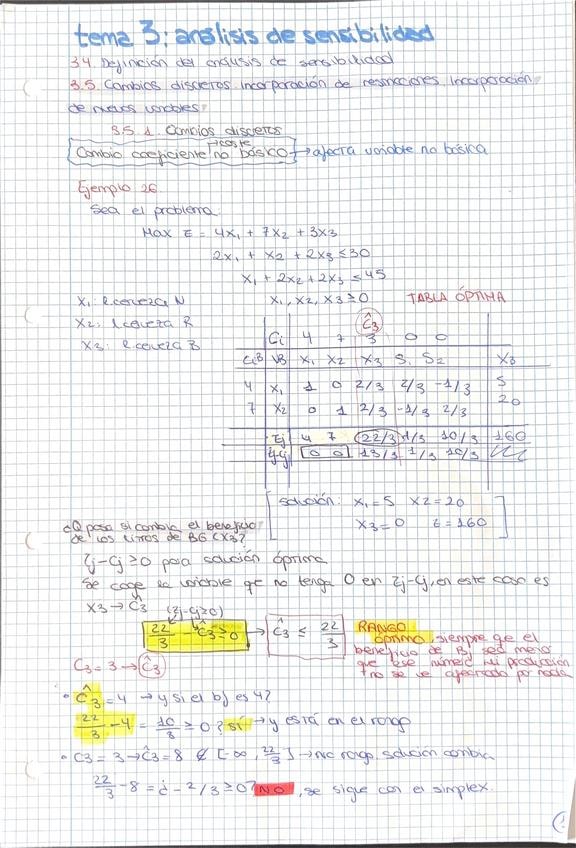 tema 3: análisis de sensibilidad
3.4. Definición del análisis de sensibilidad
3.5. Cambios discretos, incorporación de restricciones, incorporación
de nuevas variables.
3.5.1. Cambios discretos
→coste
Cambio coeficiente no básico → afecta variable no básica
Ejemplo 26
Sea el problema
Max Z = 4x1 + 7x2 + 3x3
2x1 + x2 + 2x3 ≤ 30
x1 + 2x2 + 2x3 ≤ 45
x1: l cerveza N x1, x2, x3 ≥ 0 TABLA ÓPTIMA
x2: l cerveza R
x3: l cerveza B
Ĉ3
Ci 4 7 3 0 0
CiB VB x1 x2 x3 S1 S2 XB
4 x1 1 0 2/3 2/3 -1/3 5
7 x2 0 1 2/3 -1/3 2/3 20
Zj 4 7 22/3 1/3 10/3 160
Zj-Cj 0 0 13/3 1/3 10/3
solución: x1=5 x2=20
x3=0 Z=160
¿Q pasa si cambia el beneficio
de los litros de (x3)?
Zj-Cj ≥0 para solución óptima
Se coge la variable que no tenga 0 en Zj-Cj, en este caso es
x3 → Ĉ3 (Zj-Cj≥0)
22/3 - Ĉ3 ≥ 0 → Ĉ3 ≤ 22/3
RANGO
óptimo, siempre qe el
beneficio de Bj sea menor
que ese número mi producción
no se ve afectada por nada
C3 = 3 → Ĉ3
• Ĉ3 = 4 → y si el bj es 4?
22/3 - 4 = 10/3 ≥ 0? SÍ → y está en el rango
• C3 = 3 → Ĉ3 = 8 ∉ [-∞, 22/3] → no rango, solución cambia
22/3 - 8 = ¿ - 2/3 ≥ 0? NO, se sigue con el simplex.